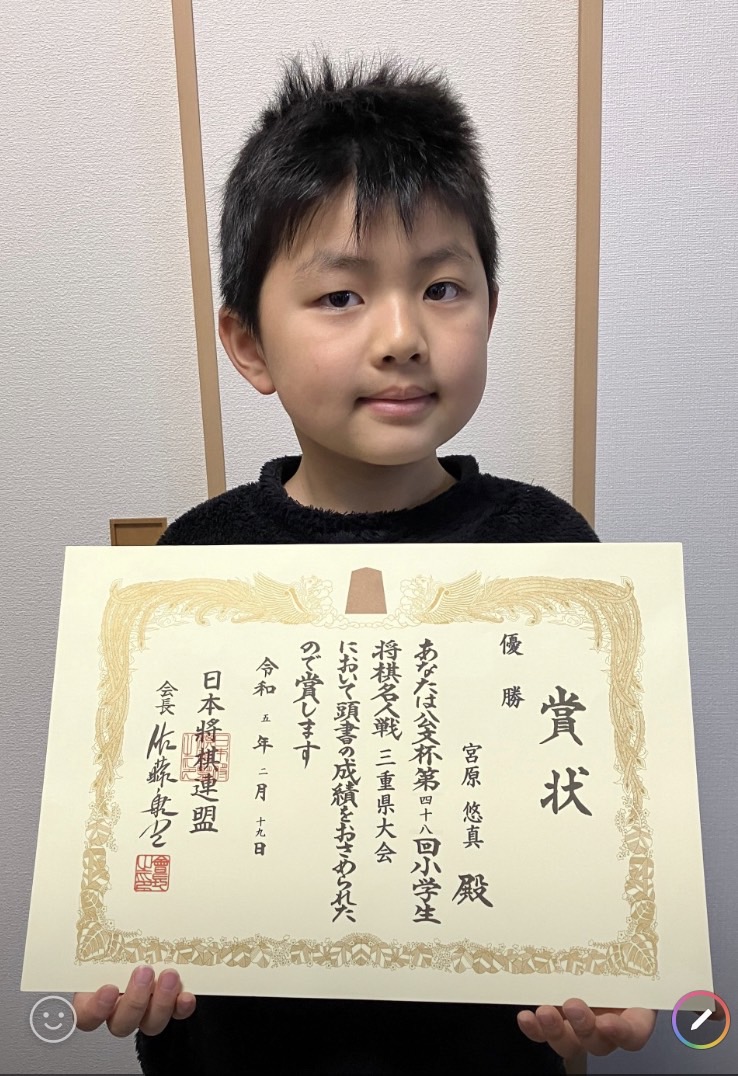 賞状
優勝
宮原 悠真 殿
あなたは公文杯第四十八回小学生
将棋名人戦 三重県大会
において頭書の成績をおさめられた
ので賞します
令和 五 年 二 月 十九 日
日本将棋連盟
会長 佐藤康光